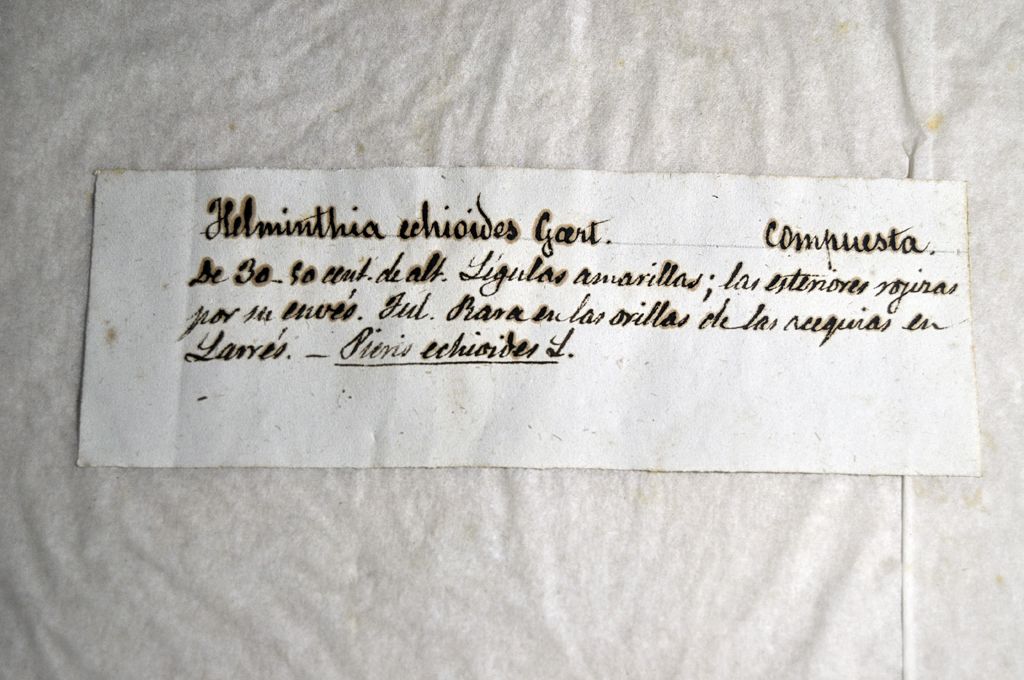 Helminthia echioides Gært. Compuesta.
De 30-50 cent. de alt. Lígulas amarillas; las esteriores rojizas
por su envés. Jul. Rara en las orillas de las acequias en
Larrés. – Picris echioides L.